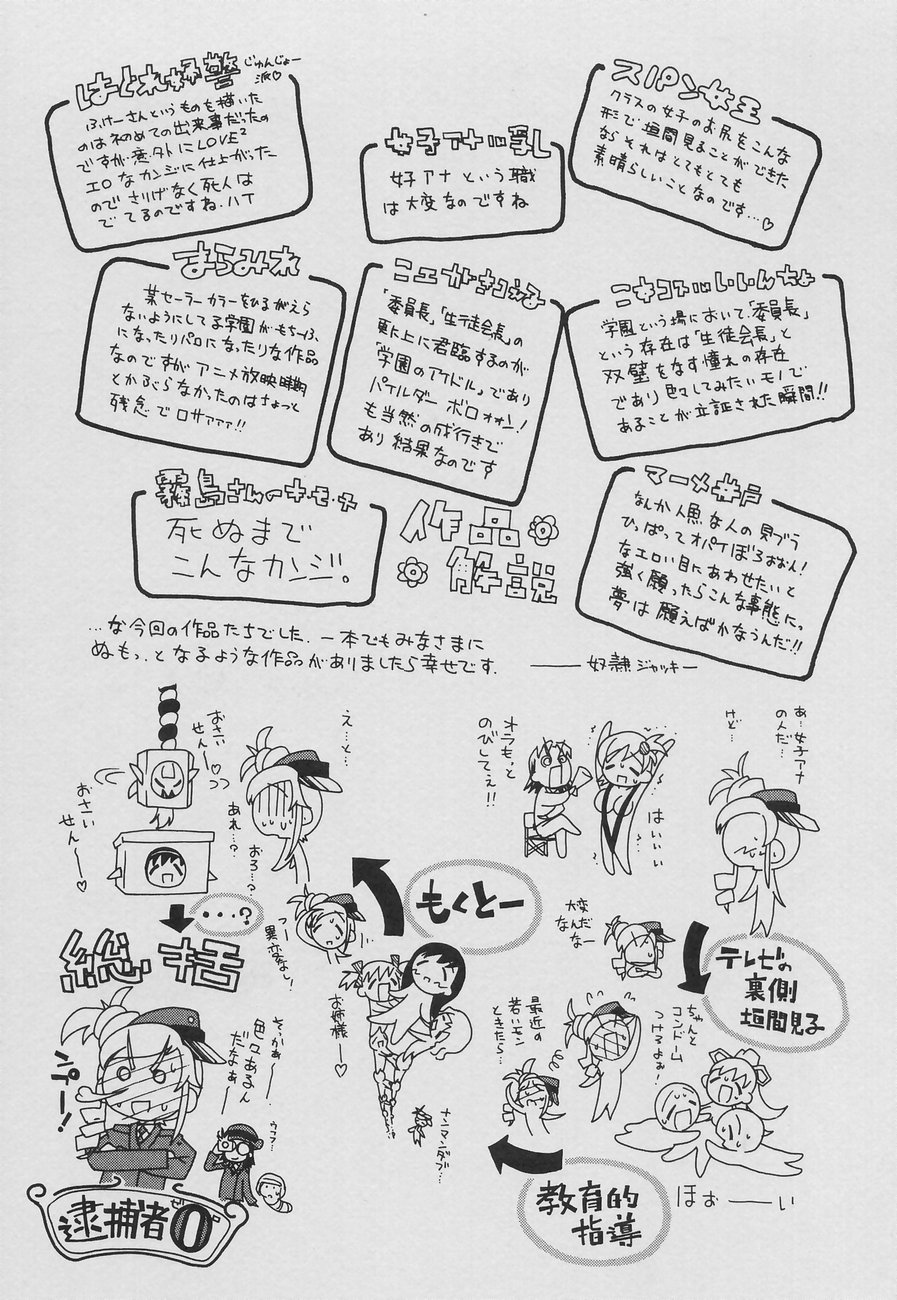 はぐれ婦警
じゅんじょー
派♡
ふけーさんというものを描いた
のは初めての出来事だったの
ですが意外にLOVE²
エロなカンジに仕上がった
のでさりげなく死人は
でてるのですね.ハイ
女子アナ
女子アナという職
は大変なのですね
スパン女王
クラスの女子のお尻をこんな
形で垣間見ることができた
ならそれはとてもとても
素晴らしいことなのです…♡
まらみれ
某セーラーカラーをひるがえら
ないようにしてる学園がもちーふ
になったりパロになったりな作品
なのですがアニメ放映時期
とかぶらなかったのはちょっと
残念でロサァァァ!!
「委員長」「生徒会長」の
更に上に君臨するのが
「学園のアイドル」であり
パイルダーボロォォン!
も当然の成行きで
あり結果なのです
学園という場において「委員長」
という存在は「生徒会長」と
双璧をなす憧れの存在
であり色々してみたいモノで
あることが立証された瞬間!!
霧島さんのキ・モ・チ
死ぬまで
こんなカンジ。
作品
解説
マーメ井戸
なんか人魚な人の貝ブラ
ひっぱってオパイぼろおなん!
なエロい目にあわせたいと
強く願ったらこんな事態に。
夢は願えばかなうんだ!!
…な今回の作品たちでした.一本でもみなさまに
ぬもっ.となるような作品がありましたら幸せです.
――奴隷ジャッキー
あ…女子アナ
のんだ…
けど…
オラもっと
のびしてぇ!!
はいいい
え…と…
あれ…?
おろ…?
おさい
せんー♡
おさい
せんー♡
テレビの
裏側
垣間見子
大変だ
なんなー
ちゃんと
コンドーム
つけるよぉ!
ほぉーーい
教育的
指導
最近の
若いモン
ときたら…
ナンマンダブ…
お姉様ー♡
もくとー
っ…
異変なし!
…?
総括
そっかぁー
色々あるん
だなぁー
ウフフ…
ンパー!
逮捕者0
ゼロ